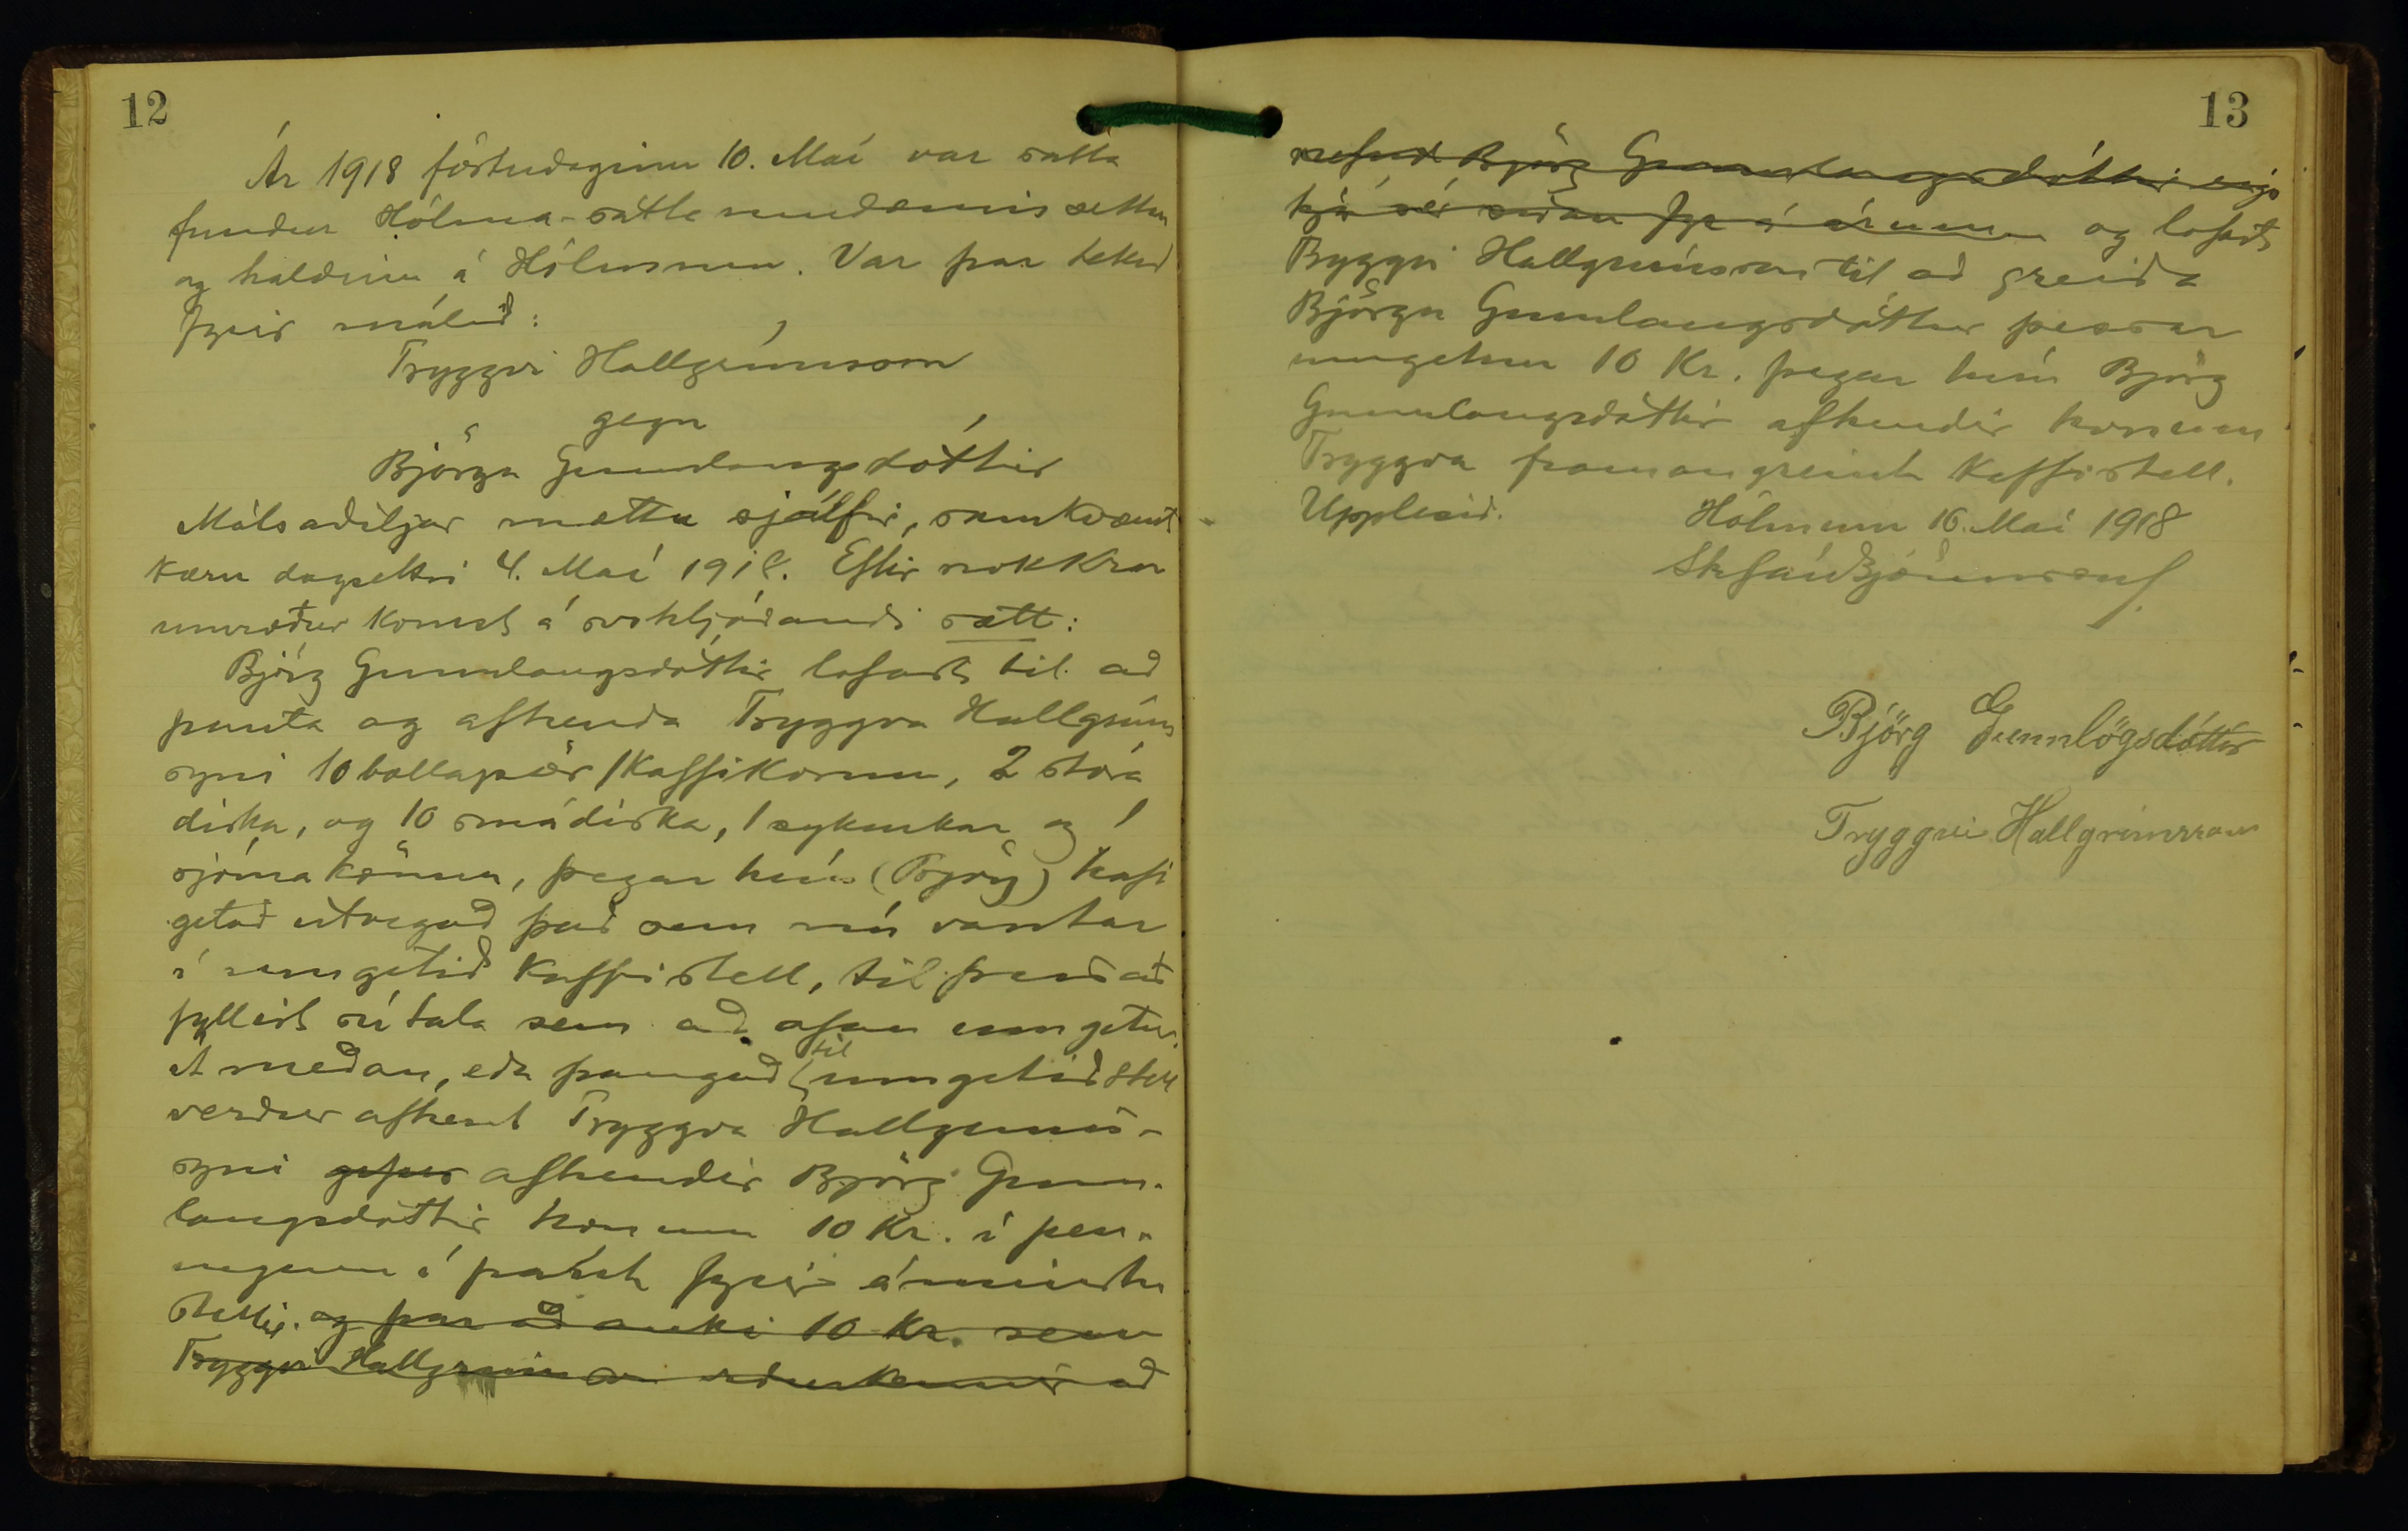 12
Ár 1918 föstudaginn 10. Maí var sátta
fundur Hólma-sáttaumdæmis settur
og haldinn á Hólmum. Var þar tekið
fyrir málið:
Tryggvi Hallgrímsson
gegn
Björgu Gunnlaugsdóttir
Málsaðiljar mættu sjálfir, samkvæmt
kæru dagsettri 4. Maí 1918. Eftir nokkrar
umræður komst á svohljóðandi sætt:
Björg Gunnlaugsdóttir lofast til að
panta og afhenda Tryggva Hallgríms
syni 10 bollapör 1 kaffikönnu, 2 stóra
diska, og 10 smádiska, 1 sykurkar og 1
rjómakönnu, þegar hún (Björg) hafi
getað útvegað það sem nú vantar
í umgetið kaffistell, til þess að
fyllist sú tala sem að ofan umgetur.
Á meðan, eða þangað til umgetið stell
verður afhent Tryggva Hallgríms-
syni gefur afhendir Björg Gunn-
laugsdóttir honum 10 Kr. í pen-
ingum í pant fyrir áminstu
stelli. og þar að auki 10 Kr. sem
Tryggvi Hallgrímsson viðurkennir að
13
nefnd Björg Gunnlaugsdóttir eigi
hjá sér síðan fyr á árum og lofast
Tryggvi Hallgrímsson til að greiða
Björgu Gunnlaugsdóttur þessar
umgetnu 10 Kr. þegar hún Björg
Gunnlaugsdóttir afhendir honum
Tryggva framangreint kaffistell.
Upplesið.
Hólmum 10. Maí 1918
Stefán Björnsson
Björg Gunnlögsdóttir
Tryggvi Hallgrímsson